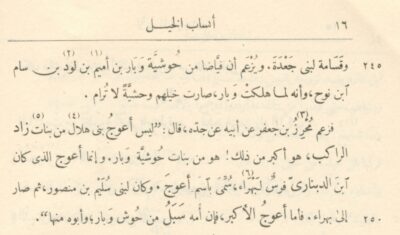 ١٦ أنساب الخيل
٢٤٥ وقَسَامة لبنى جَعْدَة. ويُزْعَم أن فيَّاضا من حُوشيَّة وَبَار بن أُمَيم(١) بن لَود(٢) بن سام
آبن نوح، وأنه لما هلكتْ وبار، صارت خيلهم وحشيَّةً لا تُرام.
فزعم مُحْرِز(٣) بن جعفر عن أبيه عن جدّه، قال: ”ليس أعوجُ بنى هِلالٍ(٤) من بنات(٥) زاد
الراكب، هو أكبر من ذلك! هو من بنات حُوشيَّة وبار. وإنما أعوج الذى كان
آبنَ الدينارىّ فرسٌ لبَهْراءَ(٦)، سُمِّىَ بآسم أعوجَ. وكان لبنى سُلَيْم بن منصور، ثم صار
٢٥٠ الى بهراء. فاما أعوجُ الأكبر، فإن أمه سَبَلُ من حُوش وَبار، وأبوه منها“.